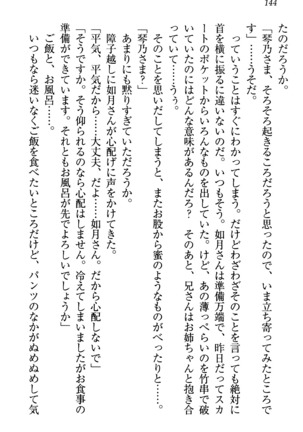 144
たのだろうか。
「琴乃さま、そろそろ起きるころだろうと思って、いま立ち寄ってみたところで
す」……うそだ。
っていうことはすぐにわかってしまう。だけどわざわざそのことを言っても絶対に
首を横に振るに違いないのだ。いつもそう。如月さんは準備万端で、昨日だってスカ
ートのポケットからいろんなものを出していたけど、あの薄っぺらいのを竹串で破
いていたのにはどんな意味があるんだろ？　そのあと、兄さんはお姉ちゃんと抱き合
っていて……うぅ。
そのことを思いだしてしまうと、またお股から蜜のようなものがべりっと……。
あまりにも黙りすぎていただろうか。
「琴乃さま？」
障子越しに如月さんが心配げに声をかけてきた。
「平気、平気だから……大丈夫、だよ……如月さん。だから心配しないで」
「そうですか。そう仰られるのなら心配はしません。冷えてしまいましたがお食事の
準備ができています。それともお風呂が先でよろしいでしょうか」
ご飯と、お風呂……。
いつもなら迷いなくご飯を食べたいところだけど、パンツのなかがぬめぬめして気